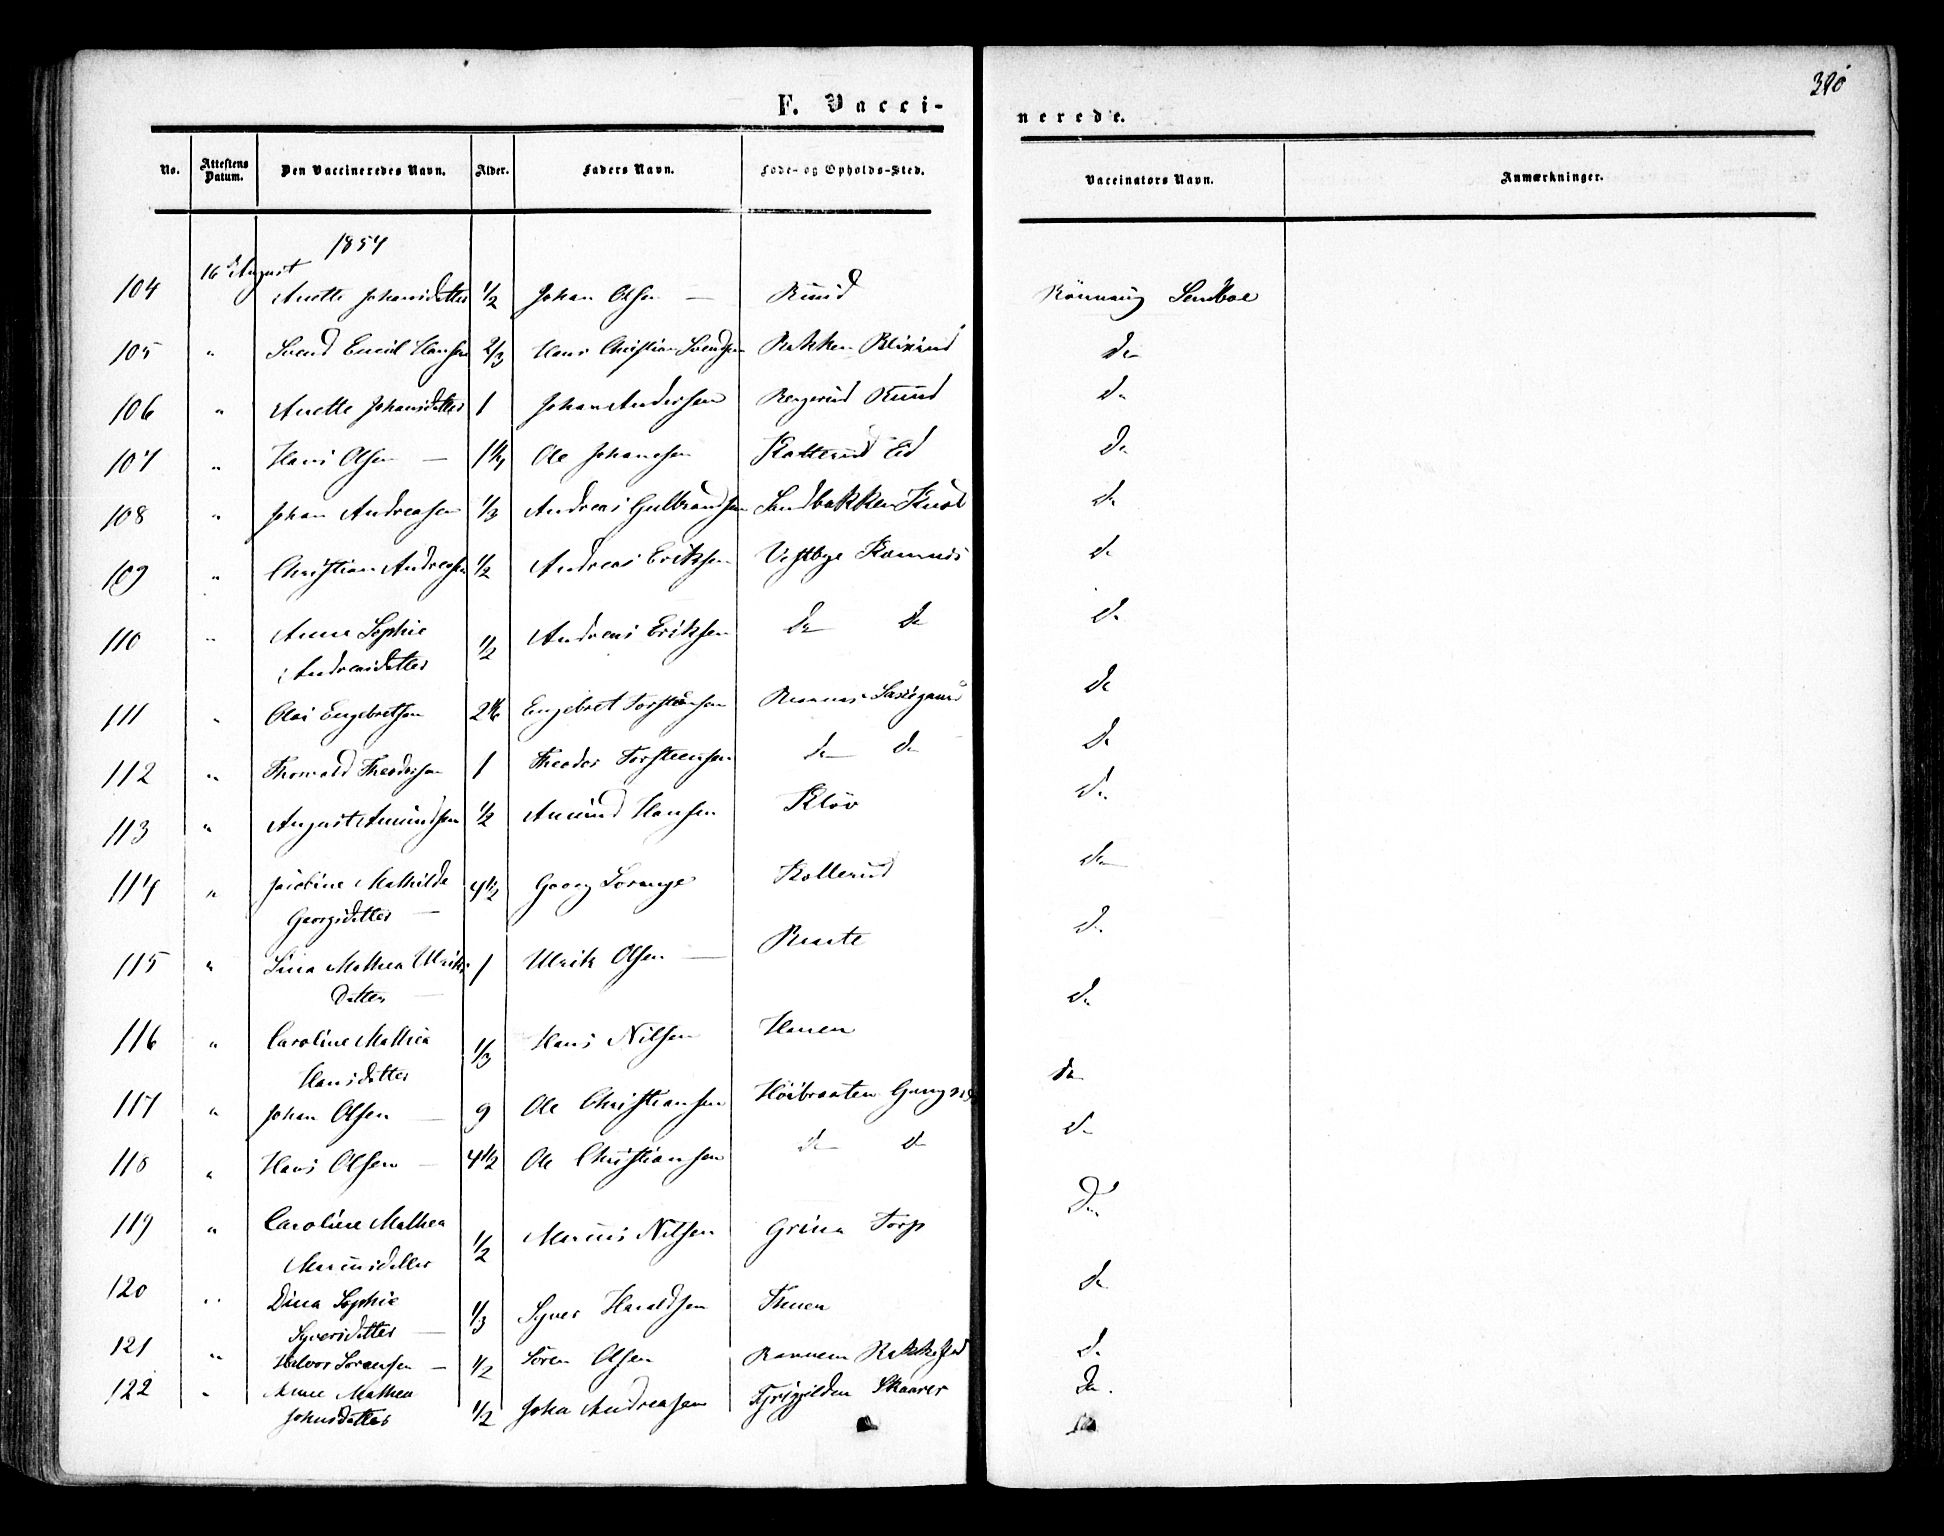 390
F. Vacci-
nerede.
No. Attestens Datum. Den Vaccineredes Navn. Alder. Faders Navn. Føde- og Opholds-Sted. Vaccinators Navn. Anmærkninger.
1854
104 16 August Anette Johansdatter 1/2 Johan Olsen — Ruud Rönnaug
105 " Svend Emil Hansen 2/3 Hans Christian Svendsen Bakken do
106 " Anette Johansdatter 1 Johan Andersen Ruud do
107 " Hans Olsen — Ole Johansen Eid do
108 " Johan Andreasen 1/3 Andreas Gulbrandsen Sandbakken do
109 " Christian Andreasen 1/2 Andreas Eriksen Vestbye do
110 " Anne Sophie 1/2 Andreas Eriksen do do do
Andreasdatter
111 " Engebretsen 2 1/6 Engebret Torstensen do
112 " Theodorsen 1 Theodor Torsteensen do do do
113 " August Amundsen 1/2 Amund Hansen Kløv do
114 " Jacobine Mathilde 4 1/2 Georg Kollerud do
Georgsdatter —
115 " Lina Mathea Ulriks 1 Ulrik Olsen — Braate do
datter —
116 " Caroline Mathea 1/3 Hans Nilsen Hauen do
Hansdatter
117 " Johan Olsen — 9 Ole Christiansen Höibraaten do
118 " Hans Olsen — 4 1/2 Ole Christiansen do do do
119 " Caroline Mathea 1/2 Marius Nilsen Grina Torp do
Mariusdatter
120 " Dina Sophie 1/3 Syver Haraldsen do
Syversdatter —
121 " Halvor Sorensen — 1/2 Sören Olsen do
122 " Anne Mathea 1/2 Johan Andreasen Skaarer do
Johnsdatter